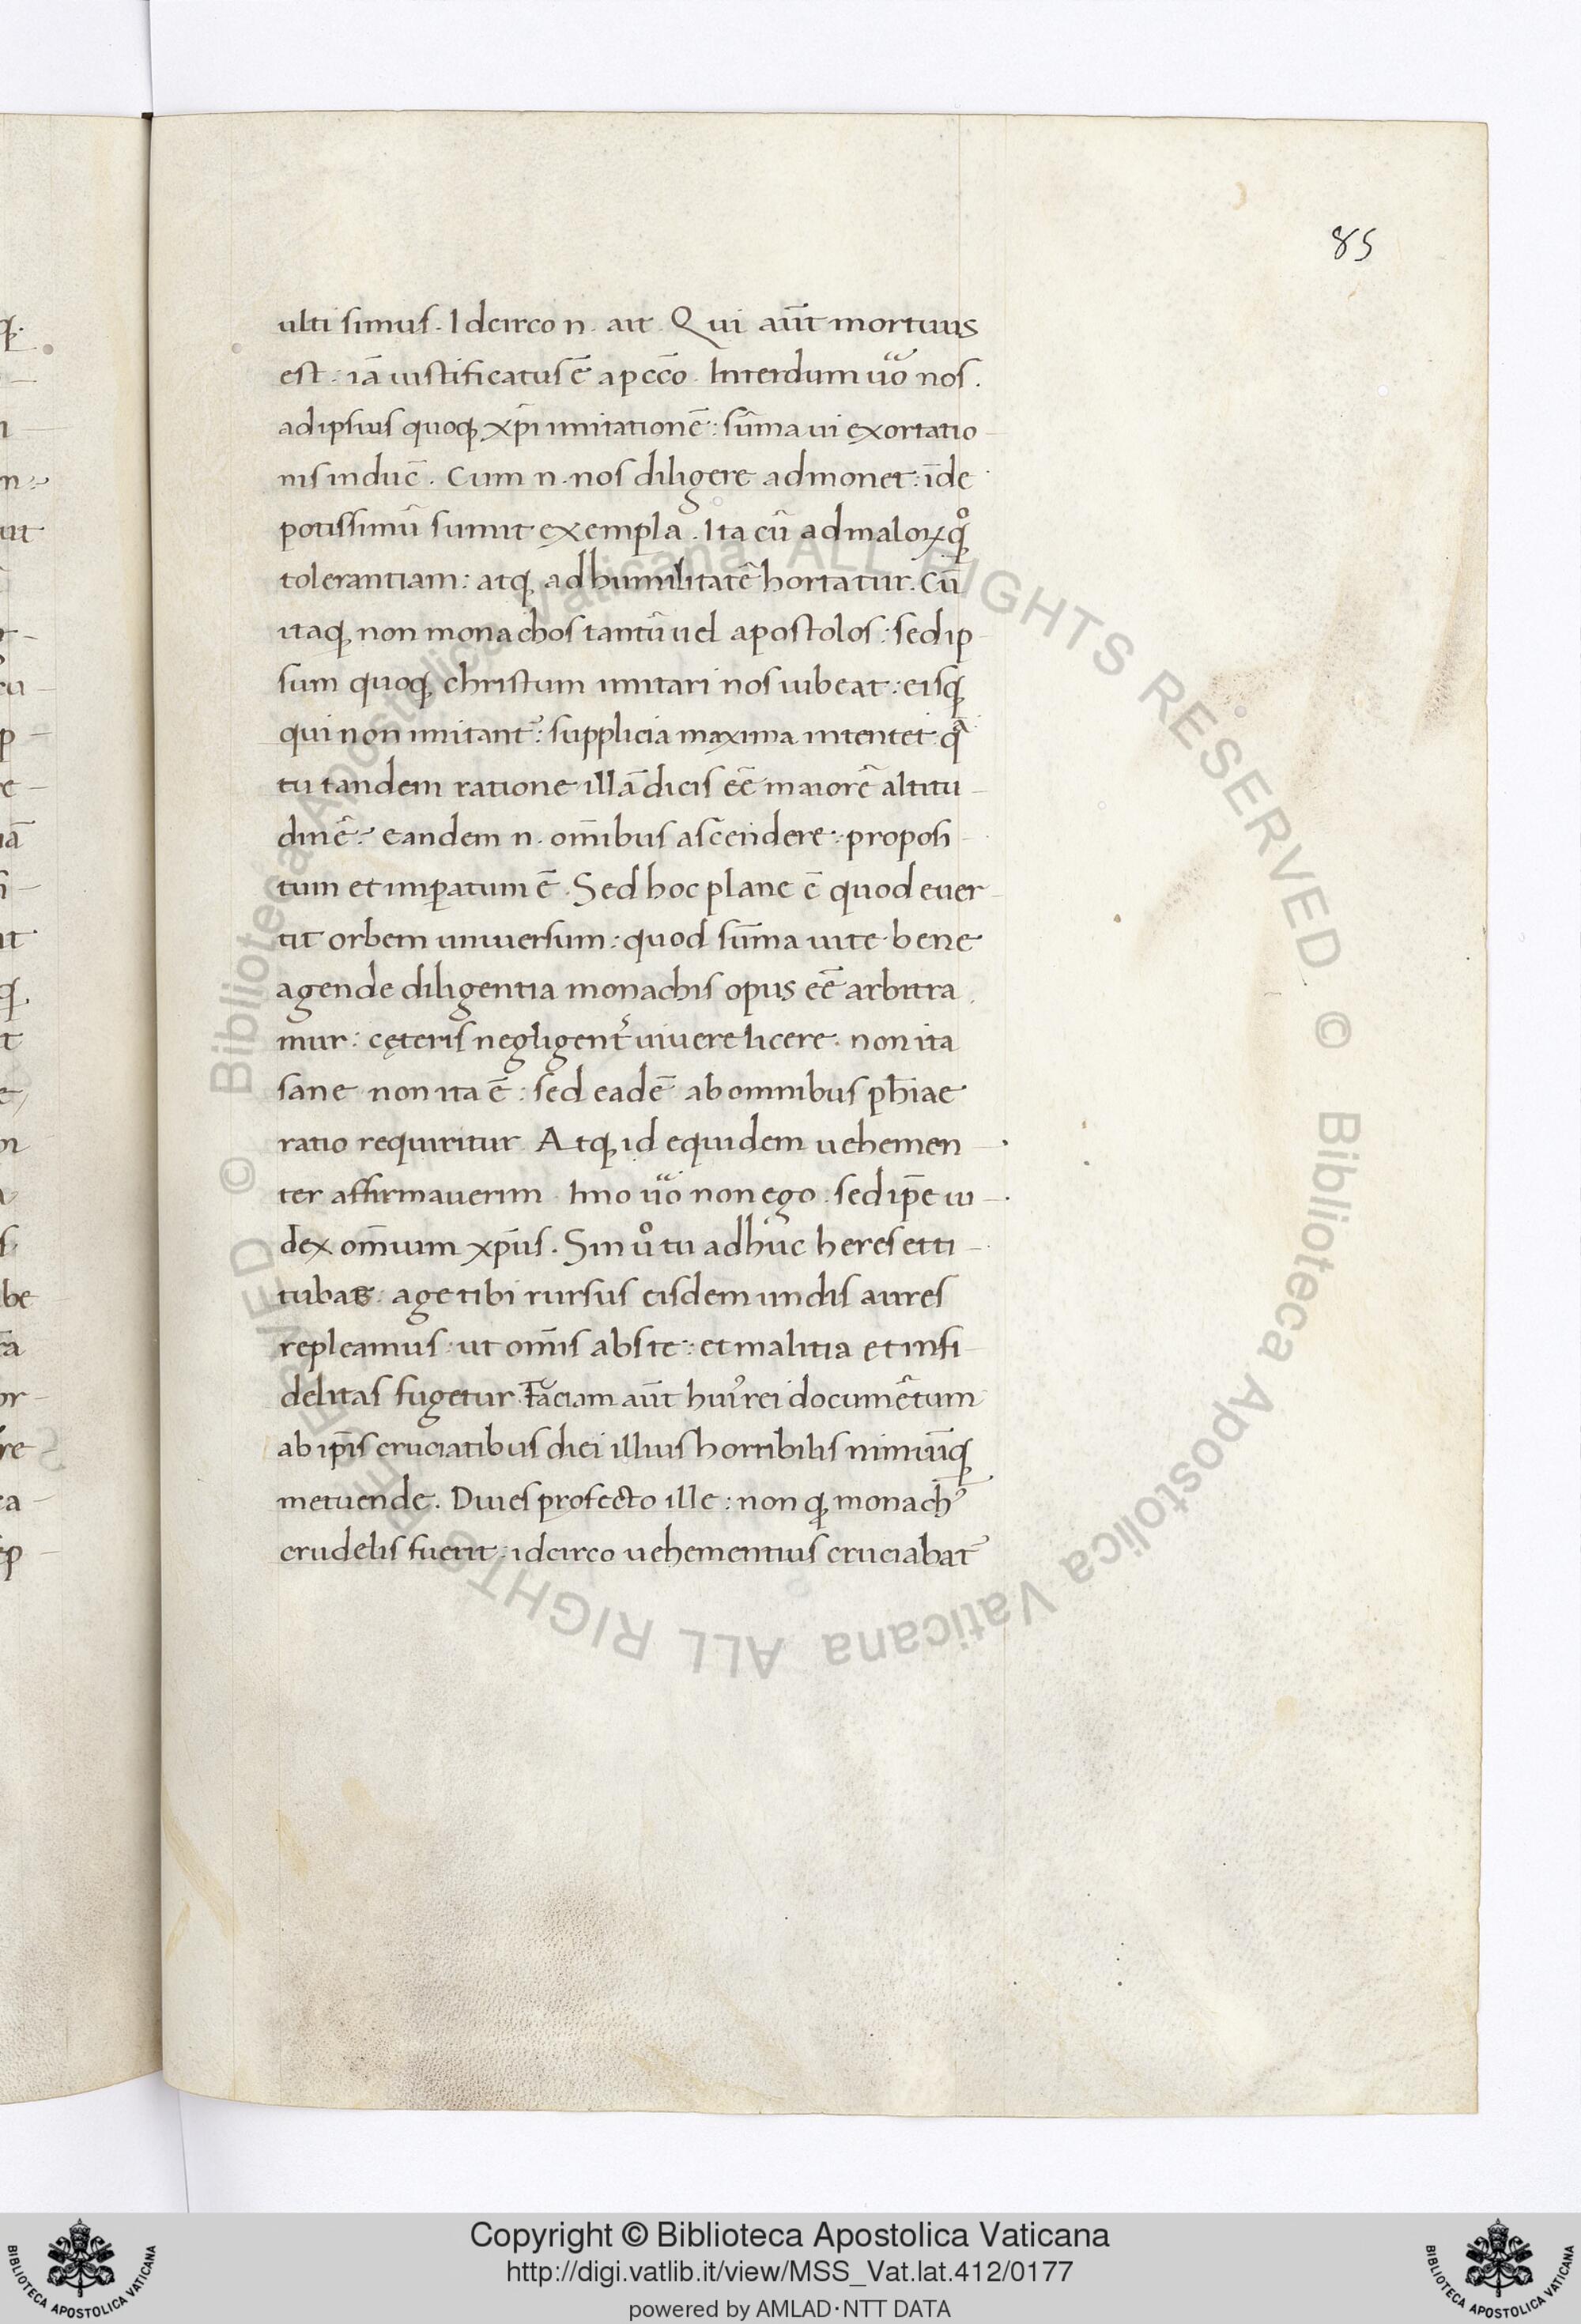 85
ulti simus. Idcirco n. ait. Qui aūt mortuus
est: iā iustificatus ē a pccō. Interdum ůo nos.
ad ipsius quoq, xp̄i imitationē: sūma ui exortatio
nis induc̄. Cum n. nos diligere admonet: īde
potissimū sumit exempla. Ita cū ad maloꝝ q̊
tolerantiam: atq, ad humilitatē hortatur. Cū
itaq, non monachos tantū uel apostolos: sed ip
sum quoq, christum imitari nos iubeat: eisq,
qui non imitant᷑: supplicia maxima intentet: qᵃ
tu tandem ratione illā dicis eē maiorē altitu
dinē? Eandem n. om̄ibus ascendere: proposi
tum et imꝑatum ē. Sed hoc plane ē quod euer
tit orbem uniuersum: quod sūma uite bene
agende diligentia monachis opus eē arbitra
mur: cęteris negligent᷑ uiuere licere. non ita
sane non ita ē: sed eadē ab omnibus ph̄iae
ratio requiritur. Atq, id equidem uehemen
ter affirmauerim. Imo ůo non ego. sed ip̄e iu
dex om̄ium xp̄us. Sin ů tu adhuc heres et ti
tubas: age tibi rursus eisdem undis aures
repleamus: ut om̄is abs te: et malitia et infi
delitas fugetur. Faciam aūt hui᷒ rei documētum
ab ip̄is cruciatibus diei illius horribilis nimiūq,
metuende. Diues profecto ille: non q, monach᷒
crudelis fuerit: idcirco uehementius cruciabat᷑
Copyright © Biblioteca Apostolica Vaticana
http://digi.vatlib.it/view/MSS_Vat.lat.412/0177
powered by AMLAD·NTT DATA
BIBLIOTECA APOSTOLICA VATICANA
BIBLIOTECA APOSTOLICA VATICANA
© Biblioteca Apostolica Vaticana ALL RIGHTS RESERVED © Biblioteca Apostolica Vaticana ALL RIGHTS RESERVED